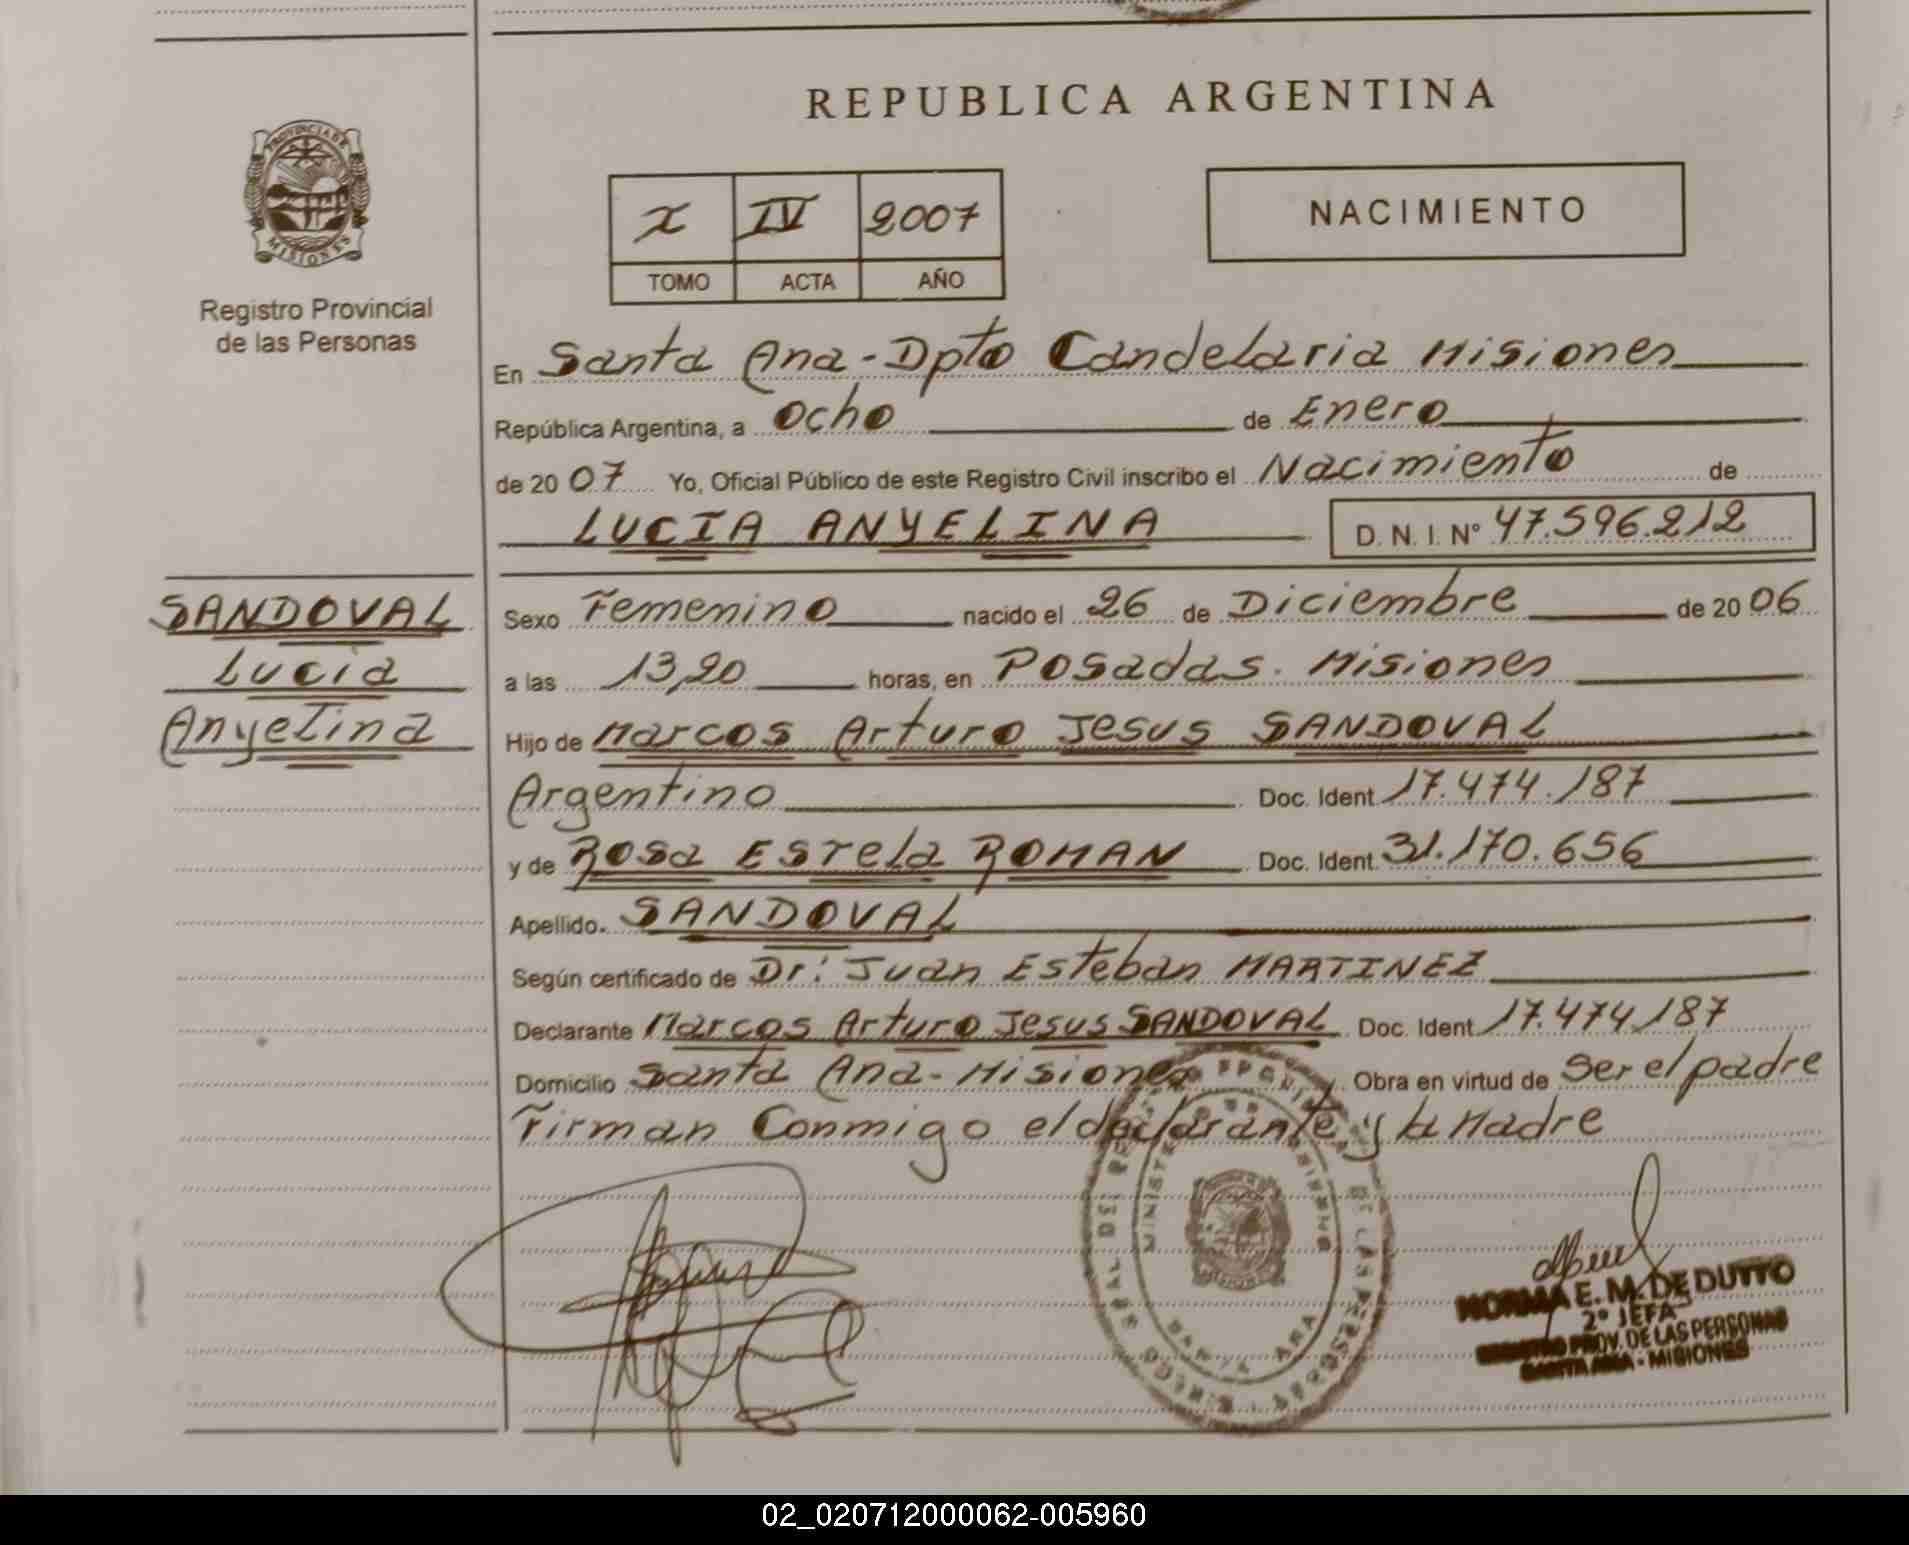 REPUBLICA ARGENTINA
PROVINCIA DE
MISIONES
Registro Provincial
de las Personas
I IV 2007
TOMO ACTA AÑO
NACIMIENTO
En Santa Ana - Dpto Candelaria Misiones
República Argentina, a Ocho de Enero
de 20 07 Yo, Oficial Público de este Registro Civil inscribo el Nacimiento de
LUCIA ANYELINA D. N. I. N° 47.596.212
SANDOVAL
Lucia
Anyelina
Sexo Femenino nacido el 26 de Diciembre de 20 06
a las 13,20 horas, en Posadas. Misiones
Hijo de Marcos Arturo Jesus SANDOVAL
Argentino Doc. Ident 17.474.187
y de Rosa Estela ROMAN Doc. Ident. 31.170.656
Apellido. SANDOVAL
Según certificado de Dr: Juan Esteban MARTINEZ
Declarante Marcos Arturo Jesus SANDOVAL Doc. Ident 17.474.187
Domicilio Santa Ana - Misiones Obra en virtud de Ser el padre
Firman Conmigo el declarante y la Madre
NORMA E. M. DE DUTTO
2° JEFA
REGISTRO PROV. DE LAS PERSONAS
SANTA ANA - MISIONES
02_020712000062-005960